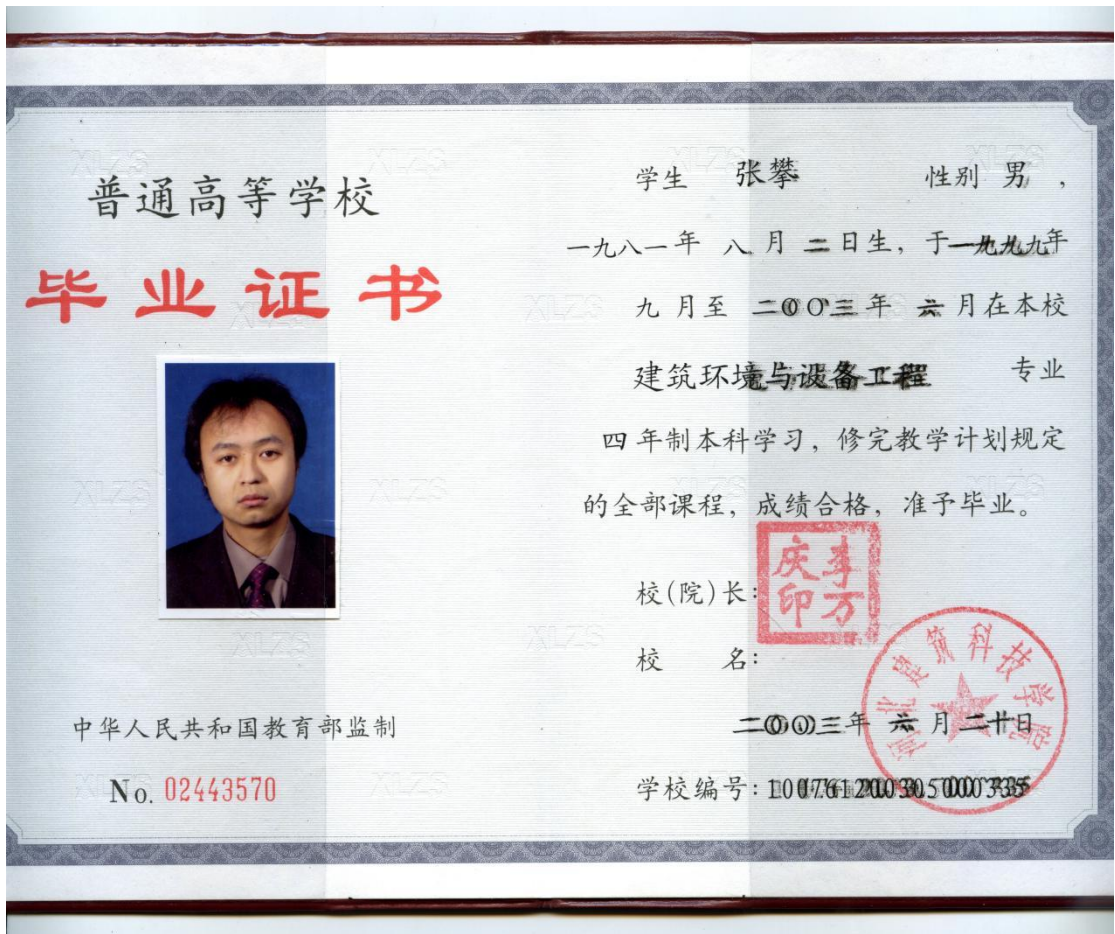 普通高等学校
毕业证书
中华人民共和国教育部监制
No. 02443570
学生 张攀 性别 男，
一九八一年 八月 二日生，于一九九九年
九月至 二〇〇三年 六月在本校
建筑环境与设备工程 专业
四年制本科学习，修完教学计划规定
的全部课程，成绩合格，准予毕业。
校(院)长：
李万庆印
校 名：
河北建筑科技学院
二〇〇三年 六月 二十日
学校编号：
XLZS